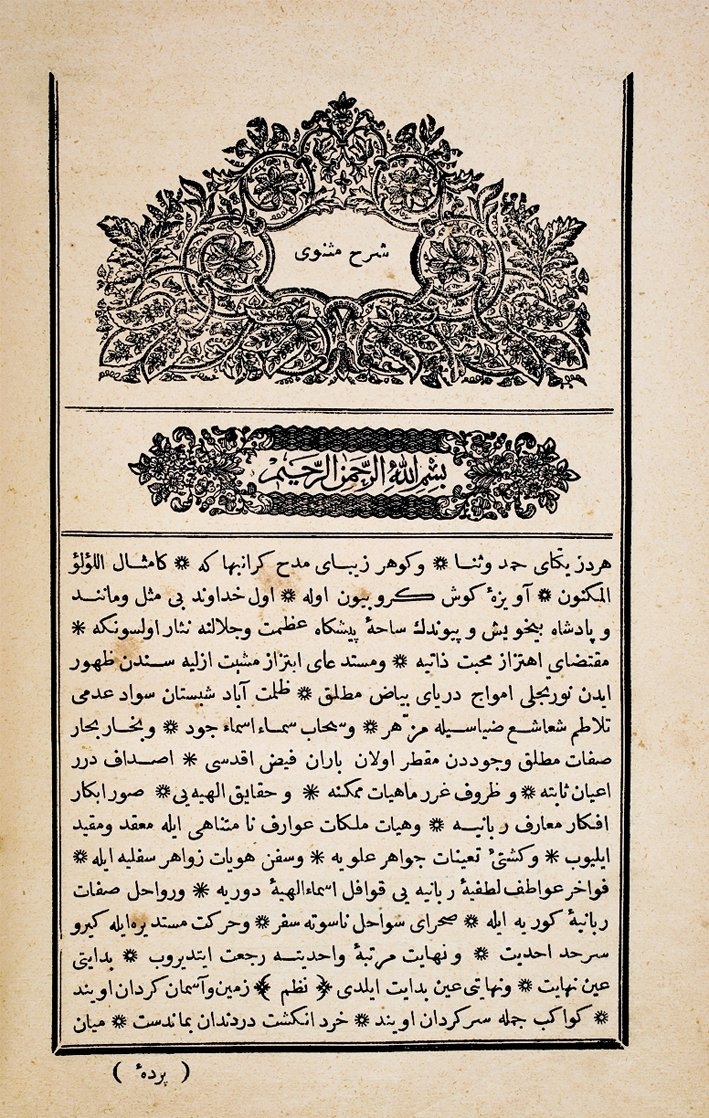 شرح مثنوی
بِسْمِ اللهِ الرَّحْمٰنِ الرَّحِیْمِ
هر در یکتای حمد وثنا ❋ وکوهر زیبای مدح کرانبها که ❋ کامثال اللؤلؤ
المکنون ❋ آویزهٔ کوش کروبیون اوله ❋ اول خداوند بی مثل ومانند
و پادشاه بیخویش و پیوندك ساحهٔ پیشکاه عظمت وجلالنه نثار اولسونکه ❋
مقتضای اهتزاز محبت ذاتیه ❋ ومستدعای ابتزاز مشیت ازلیه سندن ظهور
ایدن نورتجلی امواج دریای بیاض مطلق ❋ ظلمت آباد شبستان سواد عدمی
تلاطم شعاشع ضیاسیله مزهر ❋ وسحاب سماء اسماء جود ❋ وبخار بحار
صفات مطلق وجوددن مقطر اولان باران فیض اقدسی ❋ اصداف درر
اعیان ثابته ❋ و ظروف غرر ماهیات ممکنه ❋ و حقایق الهیه یی ❋ صور ابکار
افکار معارف ربانیه ❋ وهیات ملکات عوارف نا متناهی ایله معقد ومقید
ایلیوب ❋ وکشتئ تعینات جواهر علویه ❋ وسفن هویات زواهر سفلیه ایله ❋
فواخر عواطف لطفیهٔ ربانیه یی قوافل اسماء الهیهٔ دوریه ❋ ورواحل صفات
ربانیهٔ کوریه ایله ❋ صحرای سواحل ناسوته سفر ❋ وحرکت مستدیره ایله کیرو
سرحد احدیت ❋ ونهایت مرتبهٔ واحدیته رجعت ایتدیروب ❋ بدایتی
عین نهایت ❋ ونهایتی عین بدایت ایلدی ﴿ نظم ﴾ زمین وآسمان کردان اویند
❋ کواکب جمله سرکردان اویند ❋ خرد انکشت دردندان بماندست ❋ میان
( پردهٔ )